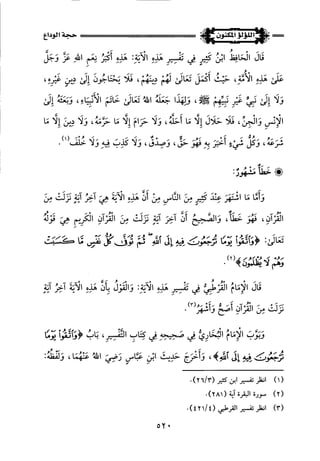 حجة الوداع
اللؤلؤ المكنون
قَالَ الْحَافِظُ ابْنُ كَثِيرٍ فِي تَفْسِيرِ هَذِهِ الْآيَةِ: هَذِهِ أَكْبَرُ نِعَمِ اللهِ عَزَّ وَجَلَّ
عَلَى هَذِهِ الْأُمَّةِ، حَيْثُ أَكْمَلَ تَعَالَى لَهُمْ دِينَهُمْ، فَلَا يَحْتَاجُونَ إِلَى دِينٍ غَيْرِهِ،
وَلَا إِلَى نَبِيٍّ غَيْرِ نَبِيِّهِمْ ﷺ، وَلِهَذَا جَعَلَهُ اللهُ تَعَالَى خَاتَمَ الْأَنْبِيَاءِ، وَبَعَثَهُ إِلَى
الْإِنْسِ وَالْجِنِّ، فَلَا حَلَالَ إِلَّا مَا أَحَلَّهُ، وَلَا حَرَامَ إِلَّا مَا حَرَّمَهُ، وَلَا دِينَ إِلَّا مَا
شَرَعَهُ، وَكُلُّ شَيْءٍ أَخْبَرَ بِهِ فَهُوَ حَقٌّ، وَصِدْقٌ، وَلَا كَذِبَ فِيهِ وَلَا خُلْفَ(١).
● خطأ مشهور:
وَأَمَّا مَا اشْتَهَرَ عِنْدَ كَثِيرٍ مِنَ النَّاسِ مِنْ أَنَّ هَذِهِ الْآيَةَ هِيَ آخِرُ آيَةٍ نَزَلَتْ مِنَ
الْقُرْآنِ، فَهُوَ خَطَأٌ، وَالصَّحِيحُ أَنَّ آخِرَ آيَةٍ نَزَلَتْ مِنَ الْقُرْآنِ الْكَرِيمِ هِيَ قَوْلُهُ
تَعَالَى: ﴿وَاتَّقُوا يَوْمًا تُرْجَعُونَ فِيهِ إِلَى اللَّهِ ثُمَّ تُوَفَّى كُلُّ نَفْسٍ مَا كَسَبَتْ
وَهُمْ لَا يُظْلَمُونَ﴾(٢).
قَالَ الْإِمَامُ الْقُرْطُبِيُّ فِي تَفْسِيرِ هَذِهِ الْآيَةِ: وَالْقَوْلُ بِأَنَّ هَذِهِ الْآيَةَ آخِرُ آيَةٍ
نَزَلَتْ مِنَ الْقُرْآنِ أَصَحُّ وَأَشْهَرُ(٣).
وَبَوَّبَ الْإِمَامُ الْبُخَارِيُّ فِي صَحِيحِهِ فِي كِتَابِ التَّفْسِيرِ، بَابُ ﴿وَاتَّقُوا يَوْمًا
تُرْجَعُونَ فِيهِ إِلَى اللَّهِ﴾، وَأَخْرَجَ حَدِيثَ ابْنِ عَبَّاسٍ رَضِيَ اللهُ عَنْهُمَا، وَلَفْظُهُ:
(١) انظر تفسير ابن كثير (٢٦/٣).
(٢) سورة البقرة آية (٢٨١).
(٣) انظر تفسير القرطبي (٤٢١/٤).
٥٢٠